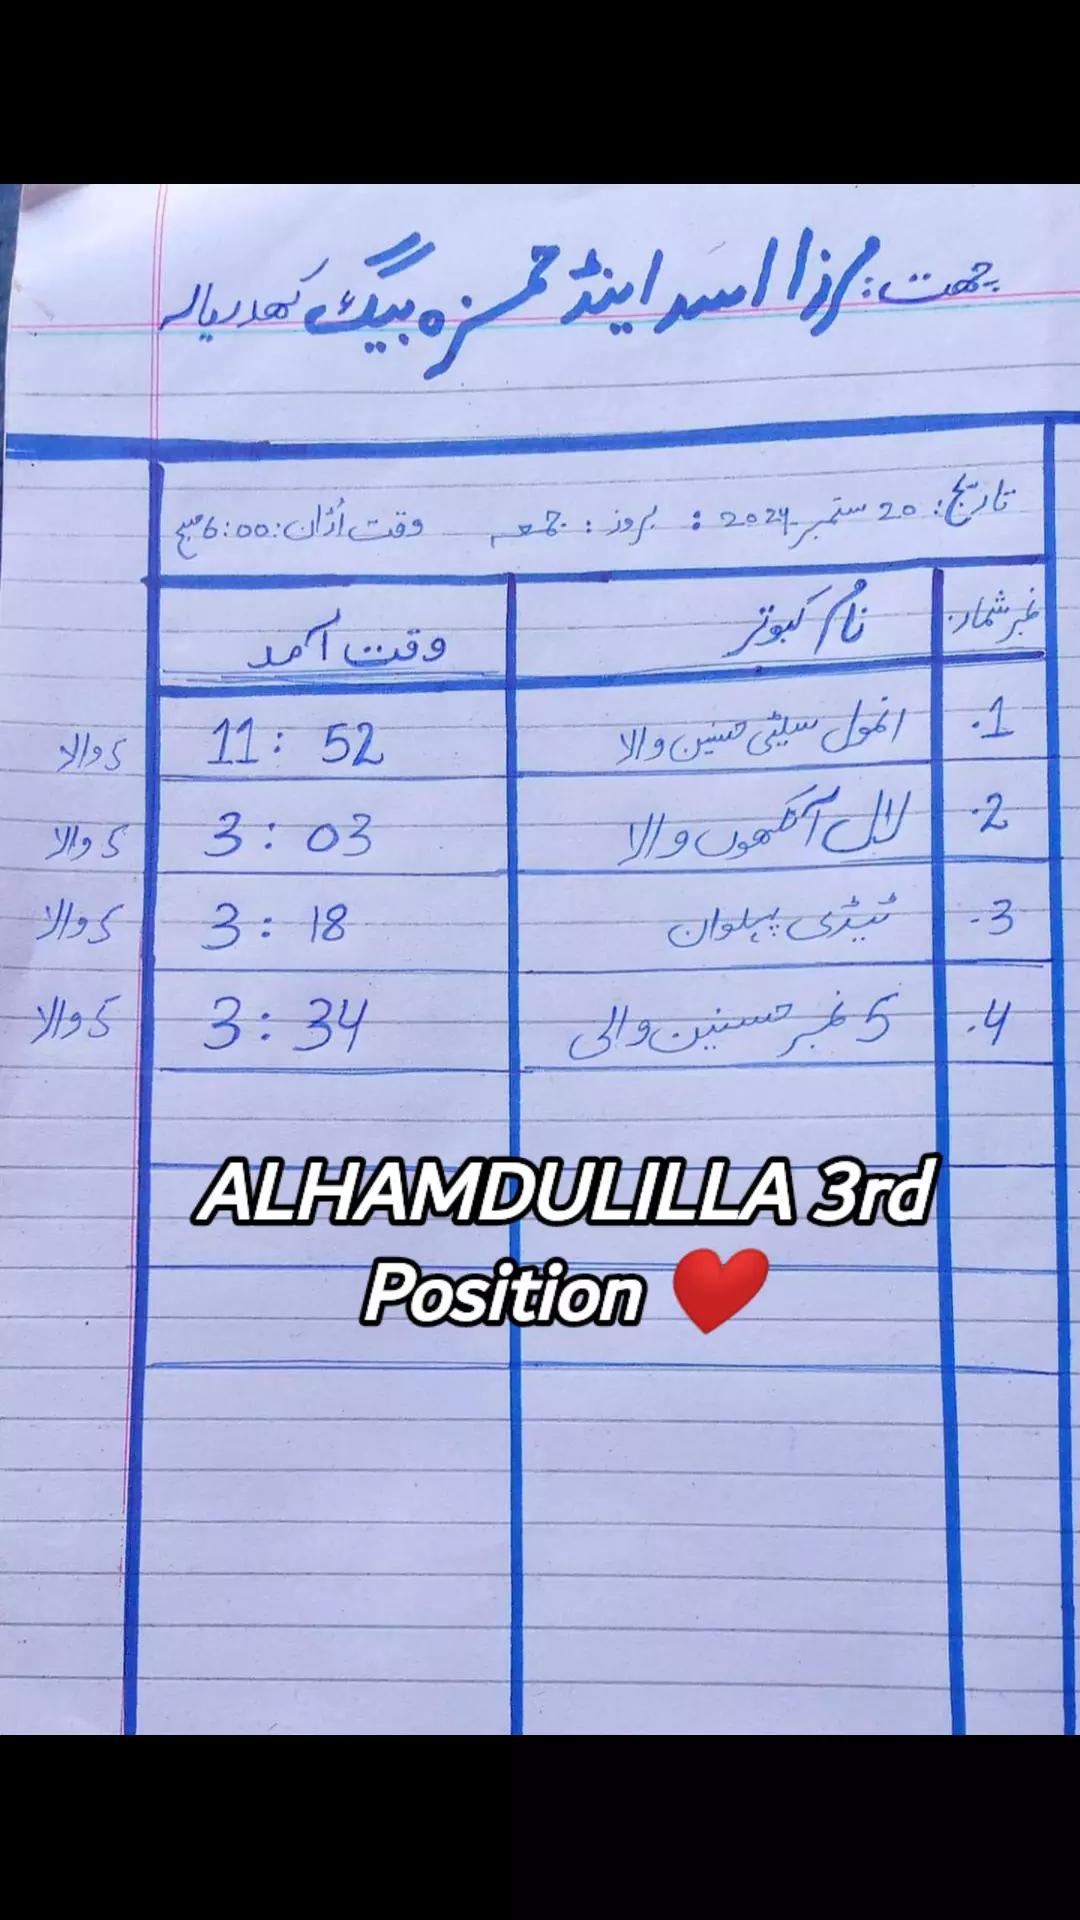 چھت: مرزا اسد اینڈ حمزہ بیگ کھدریالہ
تاریخ: 20 ستمبر 2024 : بروز : جمعہ وقت اُڑان: 6:00 صبح
نمبر شمار نام کبوتر وقت آمد
1. انمول سیٹی حسنین والا 11 : 52 5 والا
2. لال آنکھوں والا 3 : 03 5 والا
3. ٹیڈی پہلوان 3 : 18 5 والا
4. 5 نمبر حسنین والی 3 : 34 5 والا
ALHAMDULILLA 3rd
Position ❤️